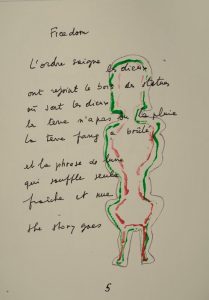 Freedom
L'ordre saigne les dieux
ont rejoint le bois des statues
où sont les dieux
la terre n'a pas su la pluie
la terre a brûlé
et la phrase de lune
qui souffle seule
fraîche et nue
the story goes
5